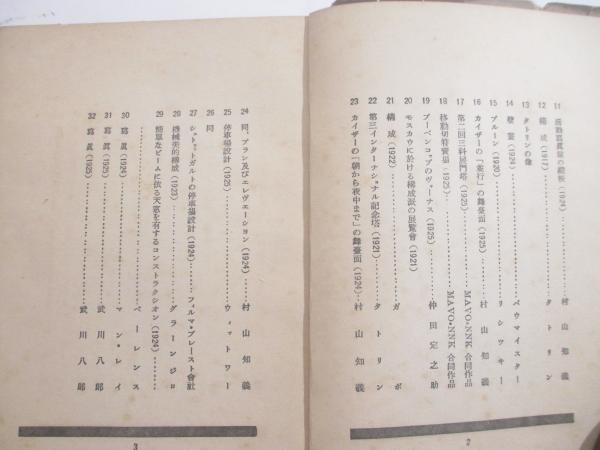 11 活動寫眞館の縱覗 (1924)………村山知義
12 構成 (1917)………タトリン
13 タトリンの像
14 壁畫 (1924)………バウマイスター
15 プルーン (1920)………リシツキー
16 カイザーの「並行」の舞臺面 (1925)………村山知義
17 第二回三科展門塔 (1925)………MAVO・NNK 合同作品
18 移動切符賣場 (1925)………MAVO・NNK 合同作品
19 ブーベンコップのヴィーナス (1925)………仲田定之助
20 モスカウに於ける構成派の展覽會 (1921)
21 構成 (1922)………ガボ
22 第三インターナショナル記念塔 (1921)………タトリン
23 カイザーの「朝から夜中まで」の舞臺面 (1924)………村山知義
2
24 同、プラン及びエレヴエーション (1924)………村山知義
25 停車場設計 (1925)………ウィットワー
26 同
27 シュトゥットガルトの停車場設計 (1924)………フィルマ・プレースト會社
28 機械美的構成 (1923)………グラーンジロ
29 簡單なビームに依る天窓を有するコンストラクション (1924)
………ベーレンス
30 寫眞 (1924)………マン・レイ
31 寫眞 (1925)………武川八郎
32 寫眞 (1925)………武川八郎
3